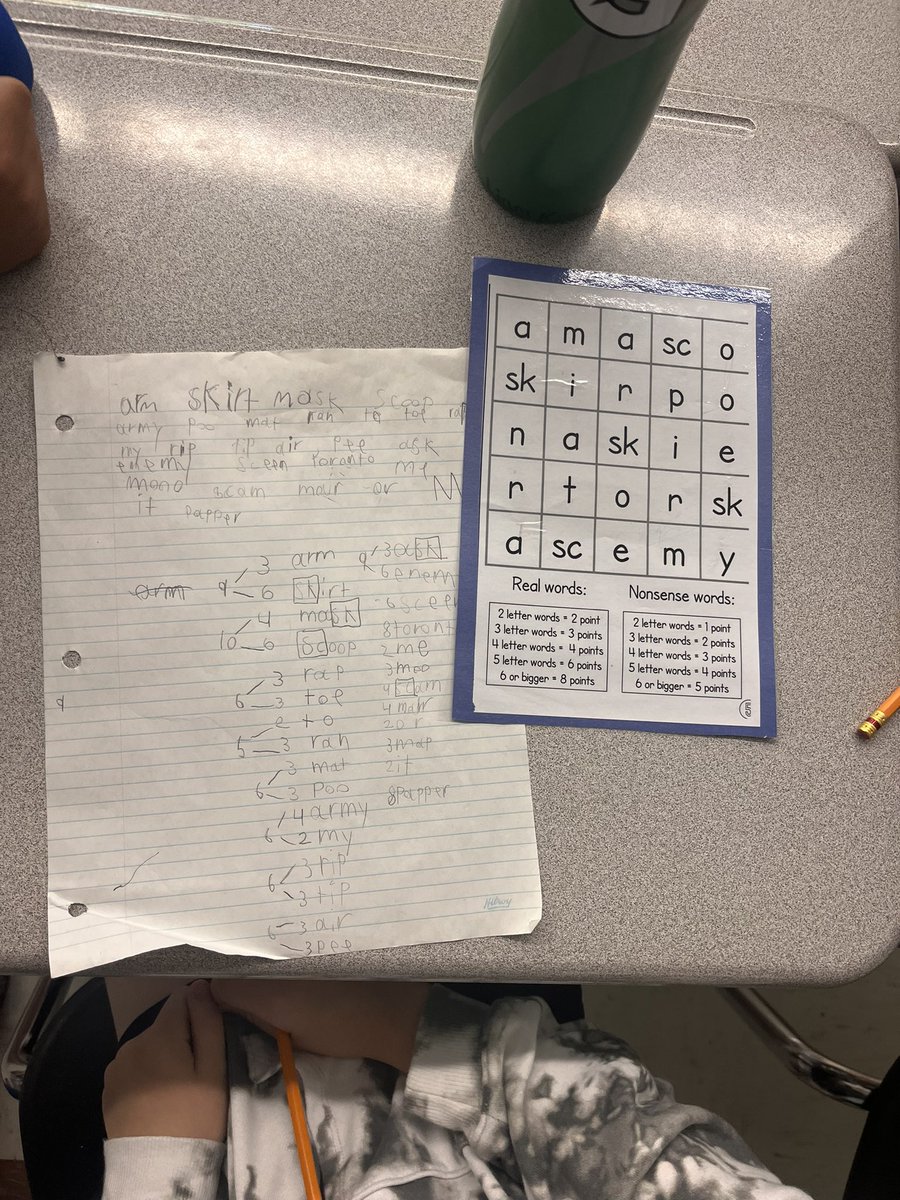 arm skirt mask Scoop
army Poo mat rah to toe rap
my rip tip air Pee ask
enemy Sceen Toronto me
mono scam mair or
it papper
arm 9 3 arm
6 skirt
10 4 mask
6 Scoop
6 3 rap
3 toe
5 2 to
3 rah
6 3 mat
3 Poo
6 4 army
2 my
6 3 rip
3 tip
6 3 air
3 pee
9 3 ask
6 enem
6 Scee
8 toront
2 me
3 moo
4 scam
4 mair
2 or
3 map
2 it
8 Papper
a m a sc o
sk i r p o
n a sk i e
r t o r sk
a sc e m y
Real words:
2 letter words = 2 point
3 letter words = 3 points
4 letter words = 4 points
5 letter words = 6 points
6 or bigger = 8 points
Nonsense words:
2 letter words = 1 point
3 letter words = 2 points
4 letter words = 3 points
5 letter words = 4 points
6 or bigger = 5 points
Hilroy